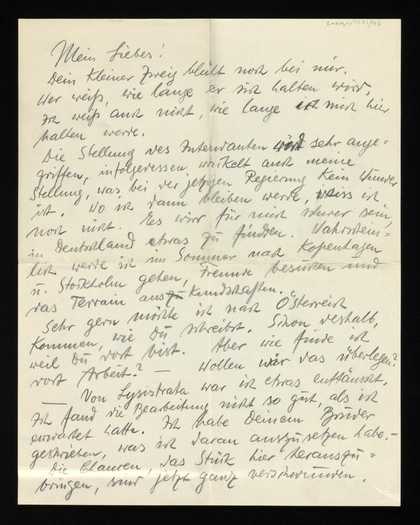 Mein Lieber!
Dein kleiner Zweig blüht noch bei mir.
Wer weiß, wie lange er sich halten wird,
Ich weiß auch nicht, wie lange ich mich hier
halten werde.
Die Stellung des Intendanten wird sehr ange-
griffen, infolgedessen wackelt auch meine
Stellung, was, bei der jetzigen Regierung kein Wunder
ist. Wo ich dann bleiben werde, weiss ich
noch nicht. Es wird für mich schwer sein,
in Deutschland etwas zu finden. Wahrschein-
lich werde ich im Sommer nach Kopenhagen
u. Stockholm gehen, Freunde besuchen und
das Terrain auszukundschaften.
Sehr gern möchte ich nach Österreich
kommen, wie Du schreibst. Schon deshalb,
weil Du dort bist. Aber wie finde ich
dort Arbeit? — Wollen wir das überlegen?
— Von Lysistrata war ich etwas enttäuscht.
Ich fand die Bearbeitung nicht so gut, als ich
erwartet hatte. Ich habe Deinem Bruder
geschrieben, was ich daran auszusetzen habe.-
Die Chancen, das Stück hier herauszu-
bringen, sind jetzt ganz verschwunden.